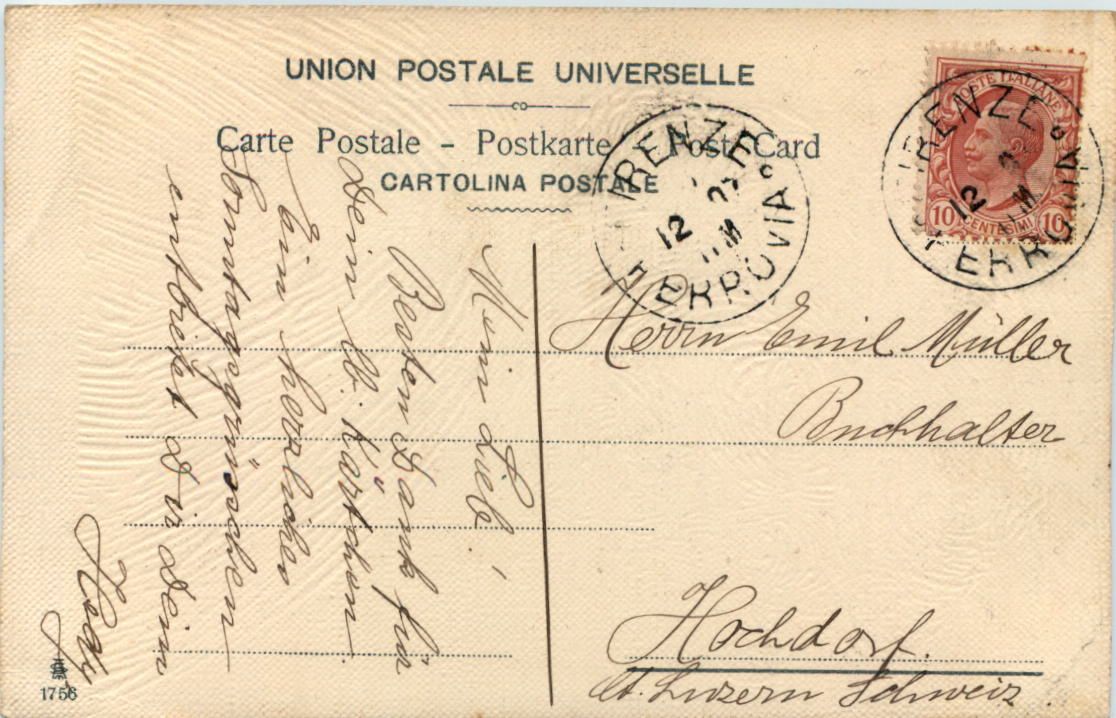 UNION POSTALE UNIVERSELLE
Carte Postale - Postkarte Post Card
CARTOLINA POSTALE
POSTE ITALIANE
10 CENTESIMI 10
FIRENZE
12
FERROVIA
FIRENZE
12
FERROVIA
Herrn Emil Müller
Buchhalter
Hochdorf.
Ct. Luzern Schweiz.
Mein Lieb!
Besten Dank für
Dein lb. Kärtchen
Ein herzliches
Sonntagsgrüsschen
entbietet Dir Dein
Hedy
1756